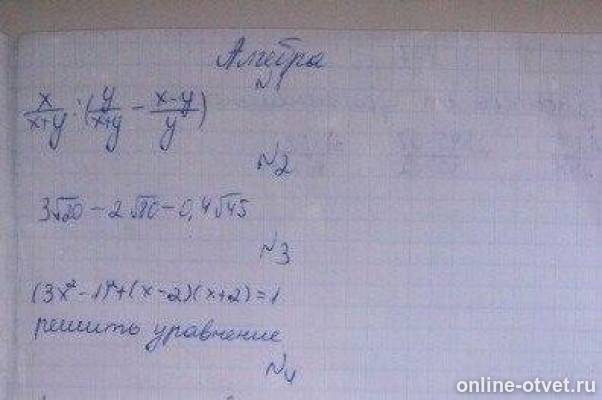 Алгебра
N1
x/(x+y) : (y/(x+y) - (x-y)/y)
N2
3√20 - 2√80 - 0,4√45
N3
(3x² - 1)² + (x-2)(x+2) = 1
решить уравнение
N4
online-otvet.ru